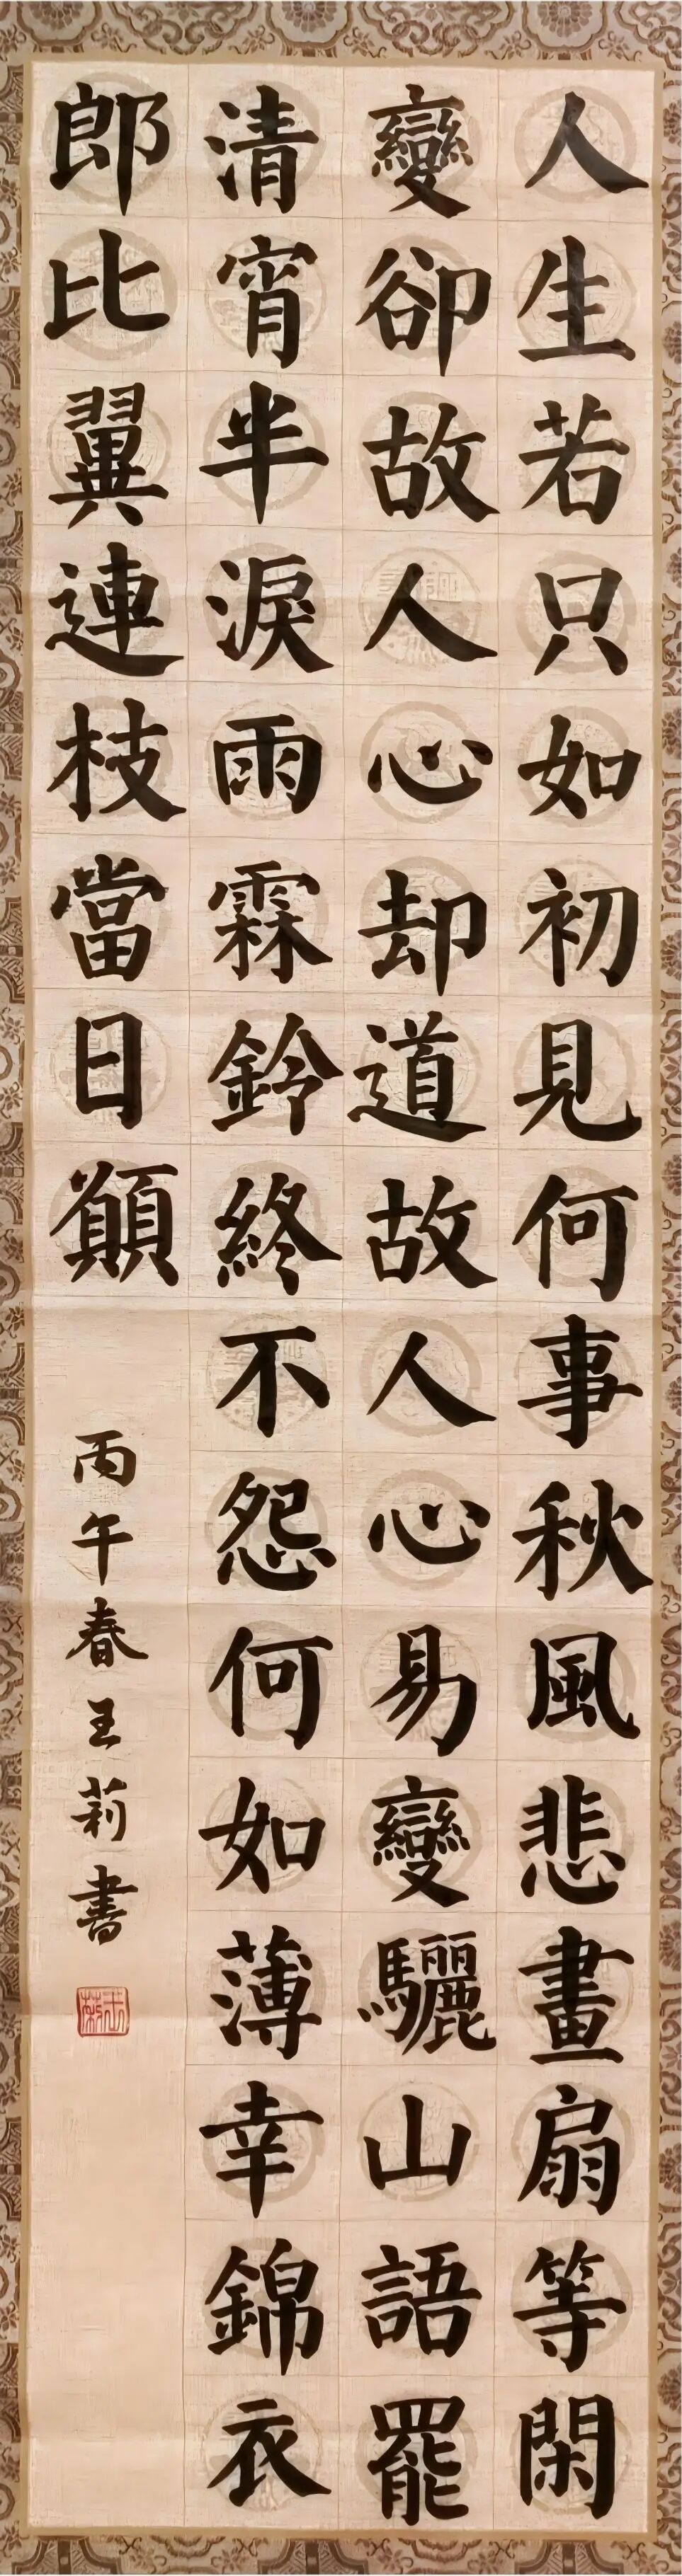 人生若只如初見何事秋風悲畫扇等閑
變卻故人心却道故人心易變驪山語罷
清宵半淚雨霖鈴終不怨何如薄幸錦衣
郎比翼連枝當日願
丙午春王莉書
王莉